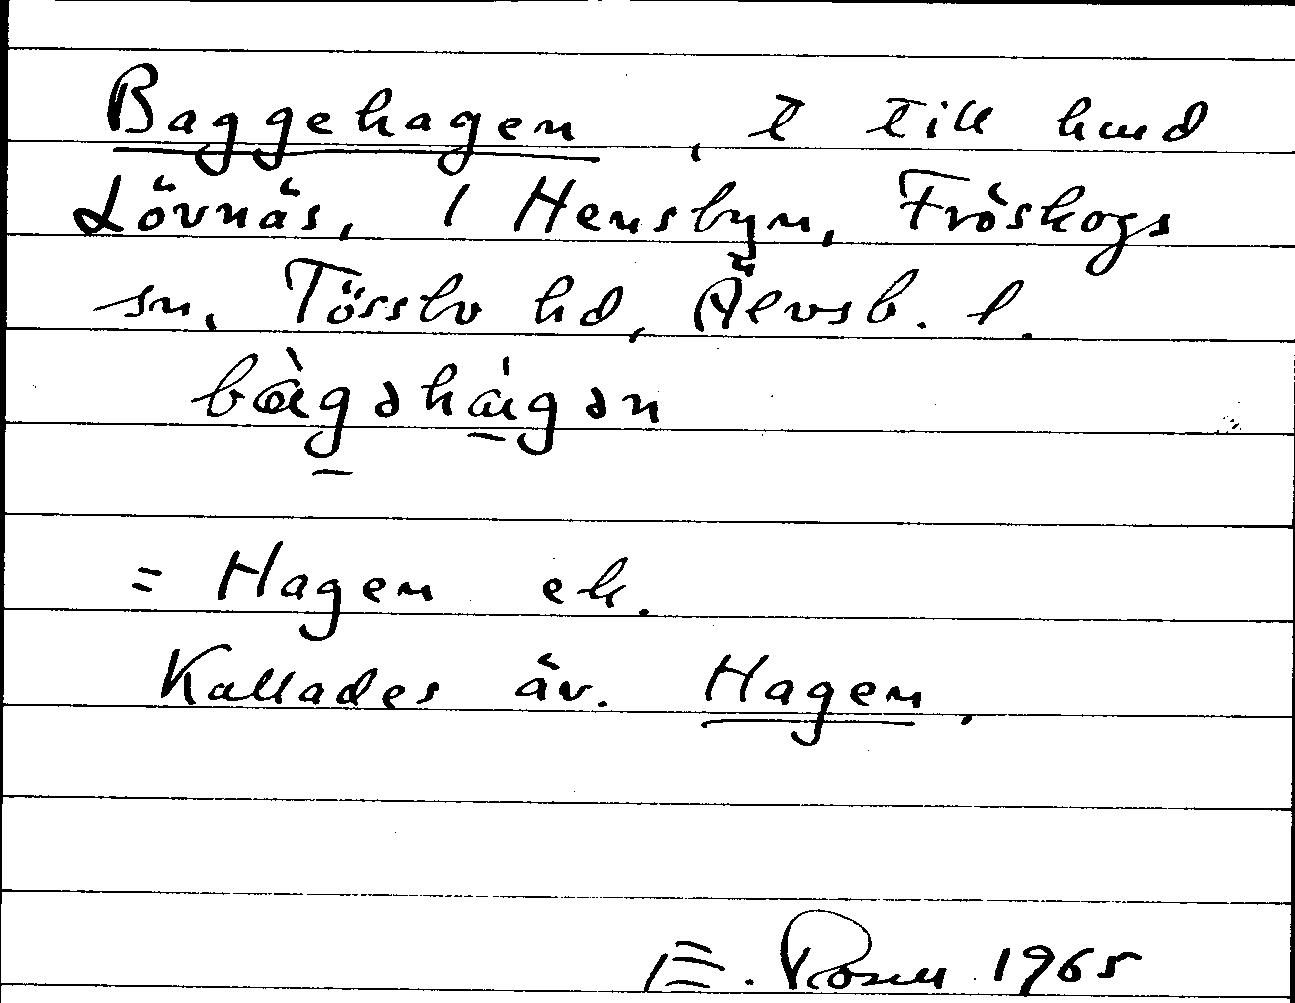 Baggehagen, t till hmd
Lövnäs, 1 Hensbyn, Fröskogs
sn, Tössbo hd, Älvsb. l.
bàgəhágən
= Hagen ek.
Kallades äv. Hagen.
E. Rosell 1965